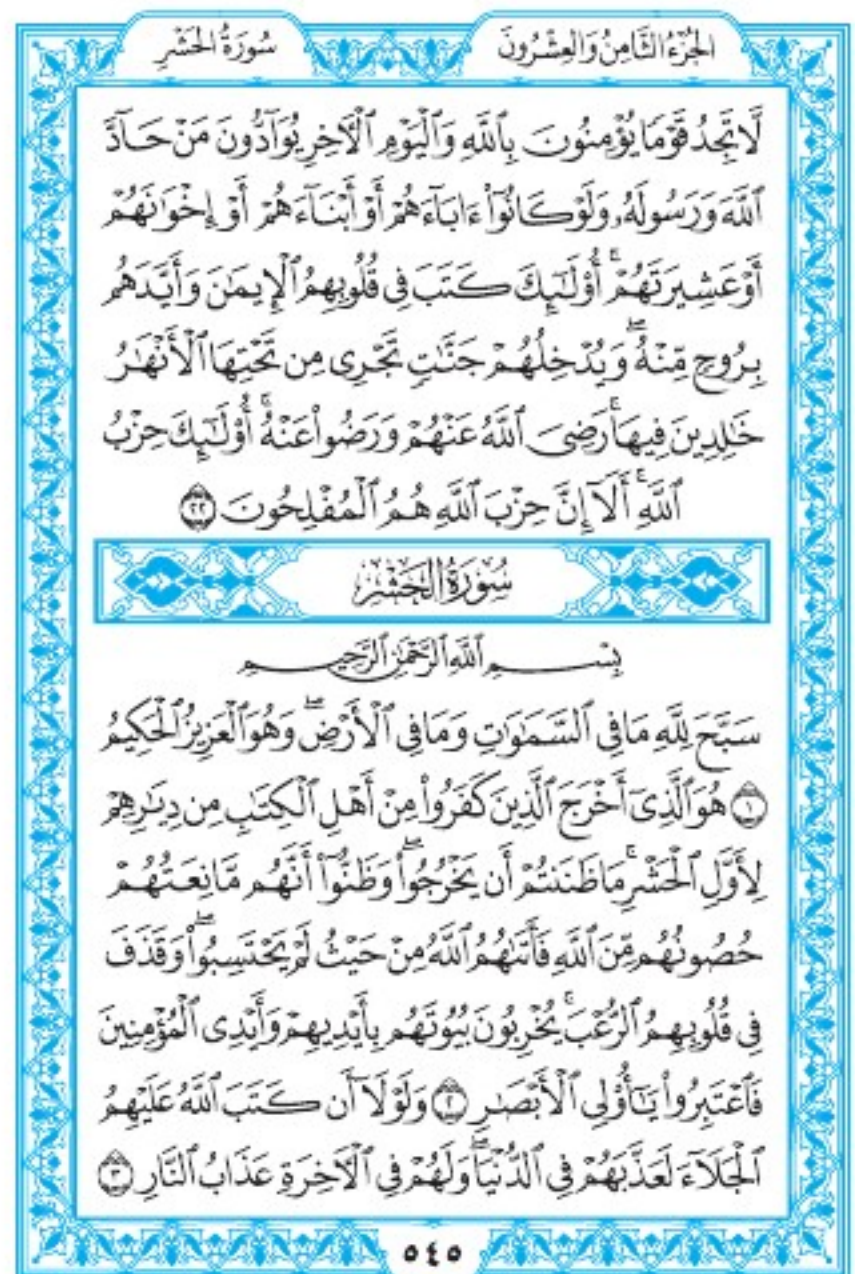 الجُزْءُ الثَّامِنُ وَالعِشْرُونَ سُورَةُ الحَشْرِ
لَّا تَجِدُ قَوْمًا يُؤْمِنُونَ بِٱللَّهِ وَٱلْيَوْمِ ٱلْأٓخِرِ يُوَآدُّونَ مَنْ حَآدَّ
ٱللَّهَ وَرَسُولَهُۥ وَلَوْ كَانُوٓا۟ ءَابَآءَهُمْ أَوْ أَبْنَآءَهُمْ أَوْ إِخْوَٰنَهُمْ
أَوْ عَشِيرَتَهُمْۚ أُو۟لَٰٓئِكَ كَتَبَ فِى قُلُوبِهِمُ ٱلْإِيمَٰنَ وَأَيَّدَهُم
بِرُوحٍ مِّنْهُۖ وَيُدْخِلُهُمْ جَنَّٰتٍ تَجْرِى مِن تَحْتِهَا ٱلْأَنْهَٰرُ
خَٰلِدِينَ فِيهَاۚ رَضِىَ ٱللَّهُ عَنْهُمْ وَرَضُوا۟ عَنْهُۚ أُو۟لَٰٓئِكَ حِزْبُ
ٱللَّهِۚ أَلَآ إِنَّ حِزْبَ ٱللَّهِ هُمُ ٱلْمُفْلِحُونَ ٢٢
سُورَةُ الحَشْرِ
بِسْمِ ٱللَّهِ ٱلرَّحْمَٰنِ ٱلرَّحِيمِ
سَبَّحَ لِلَّهِ مَا فِى ٱلسَّمَٰوَٰتِ وَمَا فِى ٱلْأَرْضِۖ وَهُوَ ٱلْعَزِيزُ ٱلْحَكِيمُ
١ هُوَ ٱلَّذِىٓ أَخْرَجَ ٱلَّذِينَ كَفَرُوا۟ مِنْ أَهْلِ ٱلْكِتَٰبِ مِن دِيَٰرِهِمْ
لِأَوَّلِ ٱلْحَشْرِۚ مَا ظَنَنتُمْ أَن يَخْرُجُوا۟ۖ وَظَنُّوٓا۟ أَنَّهُم مَّانِعَتُهُمْ
حُصُونُهُم مِّنَ ٱللَّهِ فَأَتَىٰهُمُ ٱللَّهُ مِنْ حَيْثُ لَمْ يَحْتَسِبُوا۟ۖ وَقَذَفَ
فِى قُلُوبِهِمُ ٱلرُّعْبَۚ يُخْرِبُونَ بُيُوتَهُم بِأَيْدِيهِمْ وَأَيْدِى ٱلْمُؤْمِنِينَ
فَٱعْتَبِرُوا۟ يَٰٓأُو۟لِى ٱلْأَبْصَٰرِ ٢ وَلَوْلَآ أَن كَتَبَ ٱللَّهُ عَلَيْهِمُ
ٱلْجَلَآءَ لَعَذَّبَهُمْ فِى ٱلدُّنْيَاۖ وَلَهُمْ فِى ٱلْأٓخِرَةِ عَذَابُ ٱلنَّارِ ٣
٥٤٥